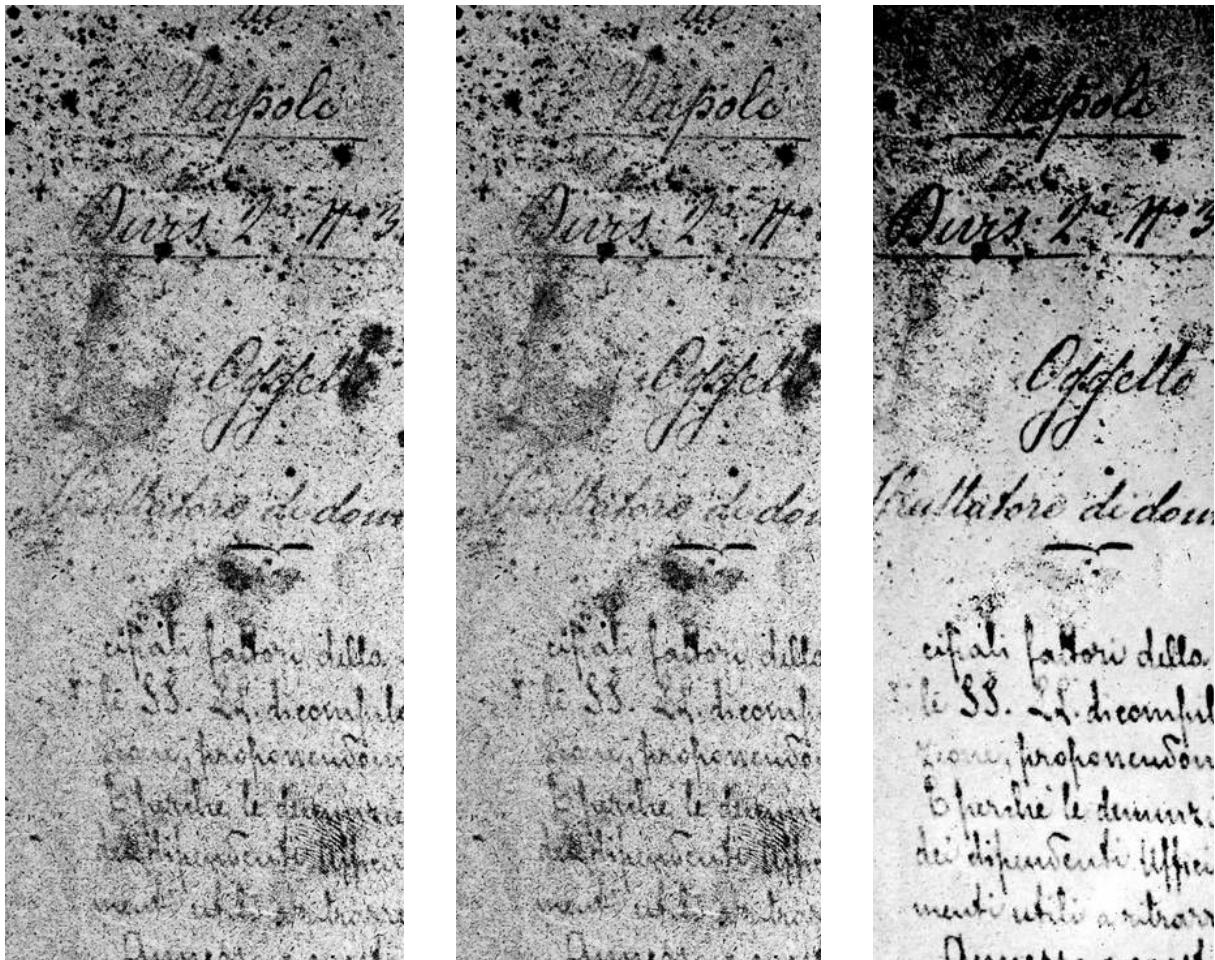 Napoli
Divis. 2ª Nº 3
Oggetto
di dom
cipali fattori della
le SS. LL. di compila
zione, proponendon
E perchè le denunzi
dei dipendenti Uffici
menti utili a ritrarre
Napoli
Divis. 2ª Nº
Oggetto
di dom
cipali fattori della
le SS. LL. di compil
zione, proponendo
E perchè le denunzi
dei dipendenti Uffi
menti utili a ritrarr
Napoli
Divis. 2ª Nº 3
Oggetto
di dom
cipali fattori della
le SS. LL. di compil
zione, proponendon
E perchè le denunz
dei dipendenti Uffici
menti utili a ritrarr